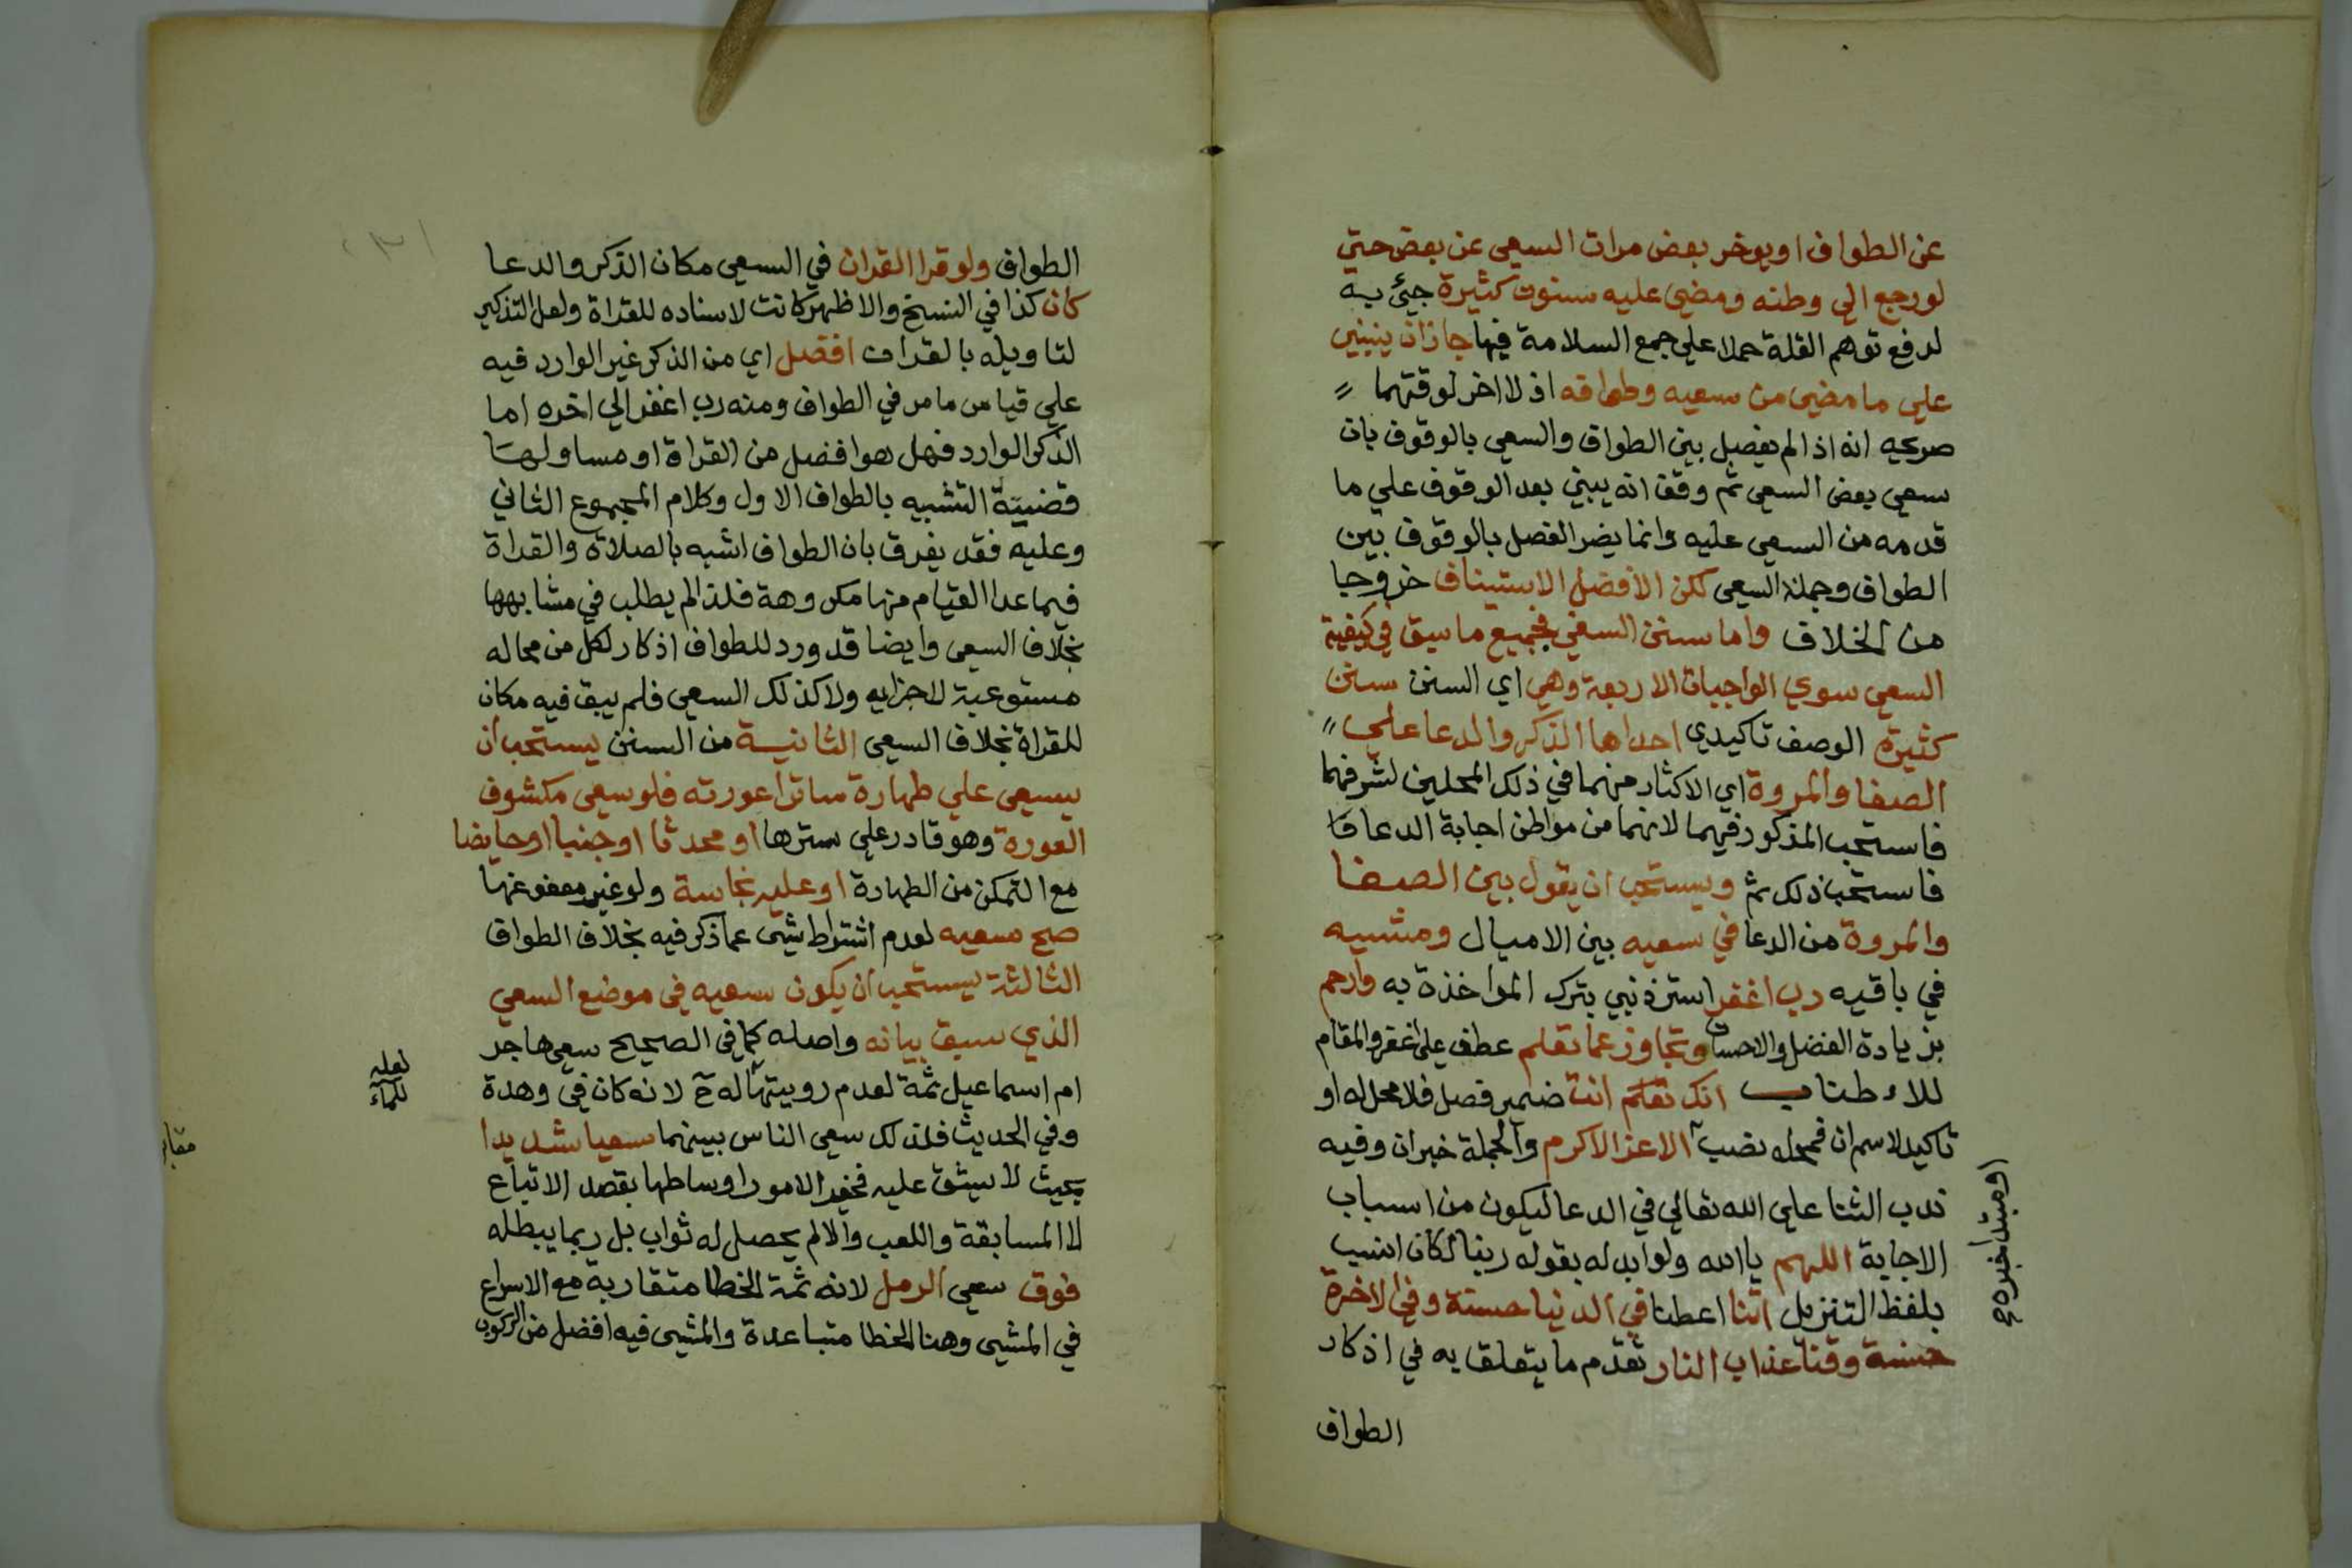 عن الطواف او يوخر بعض مرات السعي عن بعض حتي
لو رجع الي وطنه ومضي عليه سنون كثيرة جيئ به
لدفع توهم القلة حملا علي جمع السلامة فيها جاز ان يبني
علي ما مضي من سعيه وطوافه اذ لا اخر لوقتهما
صريحه انه اذا لم يفصل بين الطواف والسعي بالوقوف بان
سعي بعض السعي ثم وقف انه يبني بعد الوقوف علي ما
قدمه من السعي عليه وانما يضر الفصل بالوقوف بين
الطواف وجملة السعي لكن الافضل الاستيناف خروجا
من الخلاف واما سنن السعي فجميع ما سبق في كيفية
السعي سوي الواجبات الاربعة وهي اي السنن سنن
كثيرة الوصف تاكيدي احداها الذكر والدعا علي
الصفا والمروة اي الاكثار منهما في ذلك المحلين لشرفهما
فاستحب المذكور فيهما لانهما من مواطن اجابة الدعا
فاستحب ذلك ثم ويستحب ان يقول بين الصفا
والمروة من الدعا في سعيه بين الاميال ومشيه
في باقيه رب اغفر استر ذنبي بترك المواخذة به وارحم
بزيادة الفضل والاحسان وتجاوز عما تعلم عطف علي اغفر والمقام
للاطناب انك تعلم انت ضمير فصل فلا محل له او
تاكيد لاسم ان فمحله نصب الاعز الاكرم والجملة خبر ان وفيه
او مبتدا خبره
ندب الثنا علي الله تعالي في الدعا ليكون من اسباب
الاجابة اللهم يا الله ولو ابدله بقوله ربنا لكان انسب
بلفظ التنزيل اتنا اعطنا في الدنيا حسنة وفي الاخرة
حسنة وقنا عذاب النار تقدم ما يتعلق به في اذكار
الطواف
الطواف ولو قرا القران في السعي مكان الذكر والدعا
كان كذا في النسخ والاظهر كانت لاسناده للقراة ولعل التذكير
لتاويله بالقران افضل اي من الذكر غير الوارد فيه
علي قياس ما مر في الطواف ومنه رب اغفر الي اخره اما
الذكر الوارد فهل هو افضل من القراة او مساو لها
قضية التشبيه بالطواف الاول وكلام المجموع الثاني
وعليه فقد يفرق بان الطواف اشبه بالصلاة والقراة
فيما عدا القيام منها مكروهة فلذا لم يطلب في مشابهها
بخلاف السعي وايضا قد ورد للطواف اذكار لكل من محاله
مستوعبة لاجزايه ولا كذلك السعي فلم يبق فيه مكان
للقراة بخلاف السعي الثانية من السنن يستحب ان
يسعي علي طهارة ساترا عورته فلو سعي مكشوف
العورة وهو قادر علي سترها او محدثا او جنبا او حايضا
مع التمكن من الطهارة او عليه نجاسة ولو غير معفو عنها
صح سعيه لعدم اشتراط شي عما ذكر فيه بخلاف الطواف
الثالثة يستحب ان يكون سعيه في موضع السعي
الذي سبق بيانه واصله كما في الصحيح سعي هاجر
ام اسماعيل ثمة لعدم رويتها له ح لانه كان في وهدة
لعله
للماء
وفي الحديث فلذلك سعي الناس بينهما سعيا شديدا
بحيث لا يشق عليه فخير الامور اوساطها بقصد الاتباع
لا المسابقة واللعب والا لم يحصل له ثواب بل ربما يبطله
فوق سعي الرمل لانه ثمة الخطا متقاربة مع الاسراع
في المشي وهنا الخطا متباعدة والمشي فيه افضل من الركوب